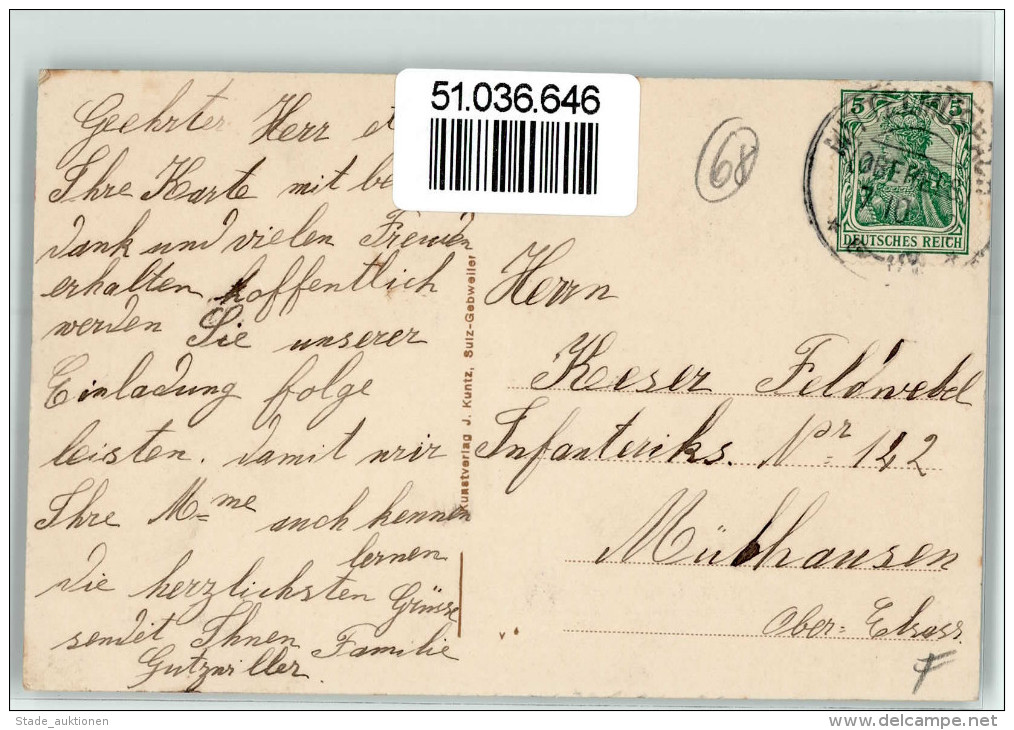 51.036.646
Geehrter Herr
Ihre Karte mit
dank und vielen Freuden
erhalten, hoffentlich
werden Sie unserer
Einladung folge
leisten. damit wir
Ihre Mme auch kennen
lernen
die herzlichsten Grüsse
sendet Ihnen Familie
Gutzwiller.
Kunstverlag J. Kuntz, Sulz-Gebweiler
68
5 5
DEUTSCHES REICH
Herrn
Keeser Feldwebel
Infanteriks. Nr 142
Mülhausen
Ober-Elsass
Stade_auktionen
www.delcampe.net